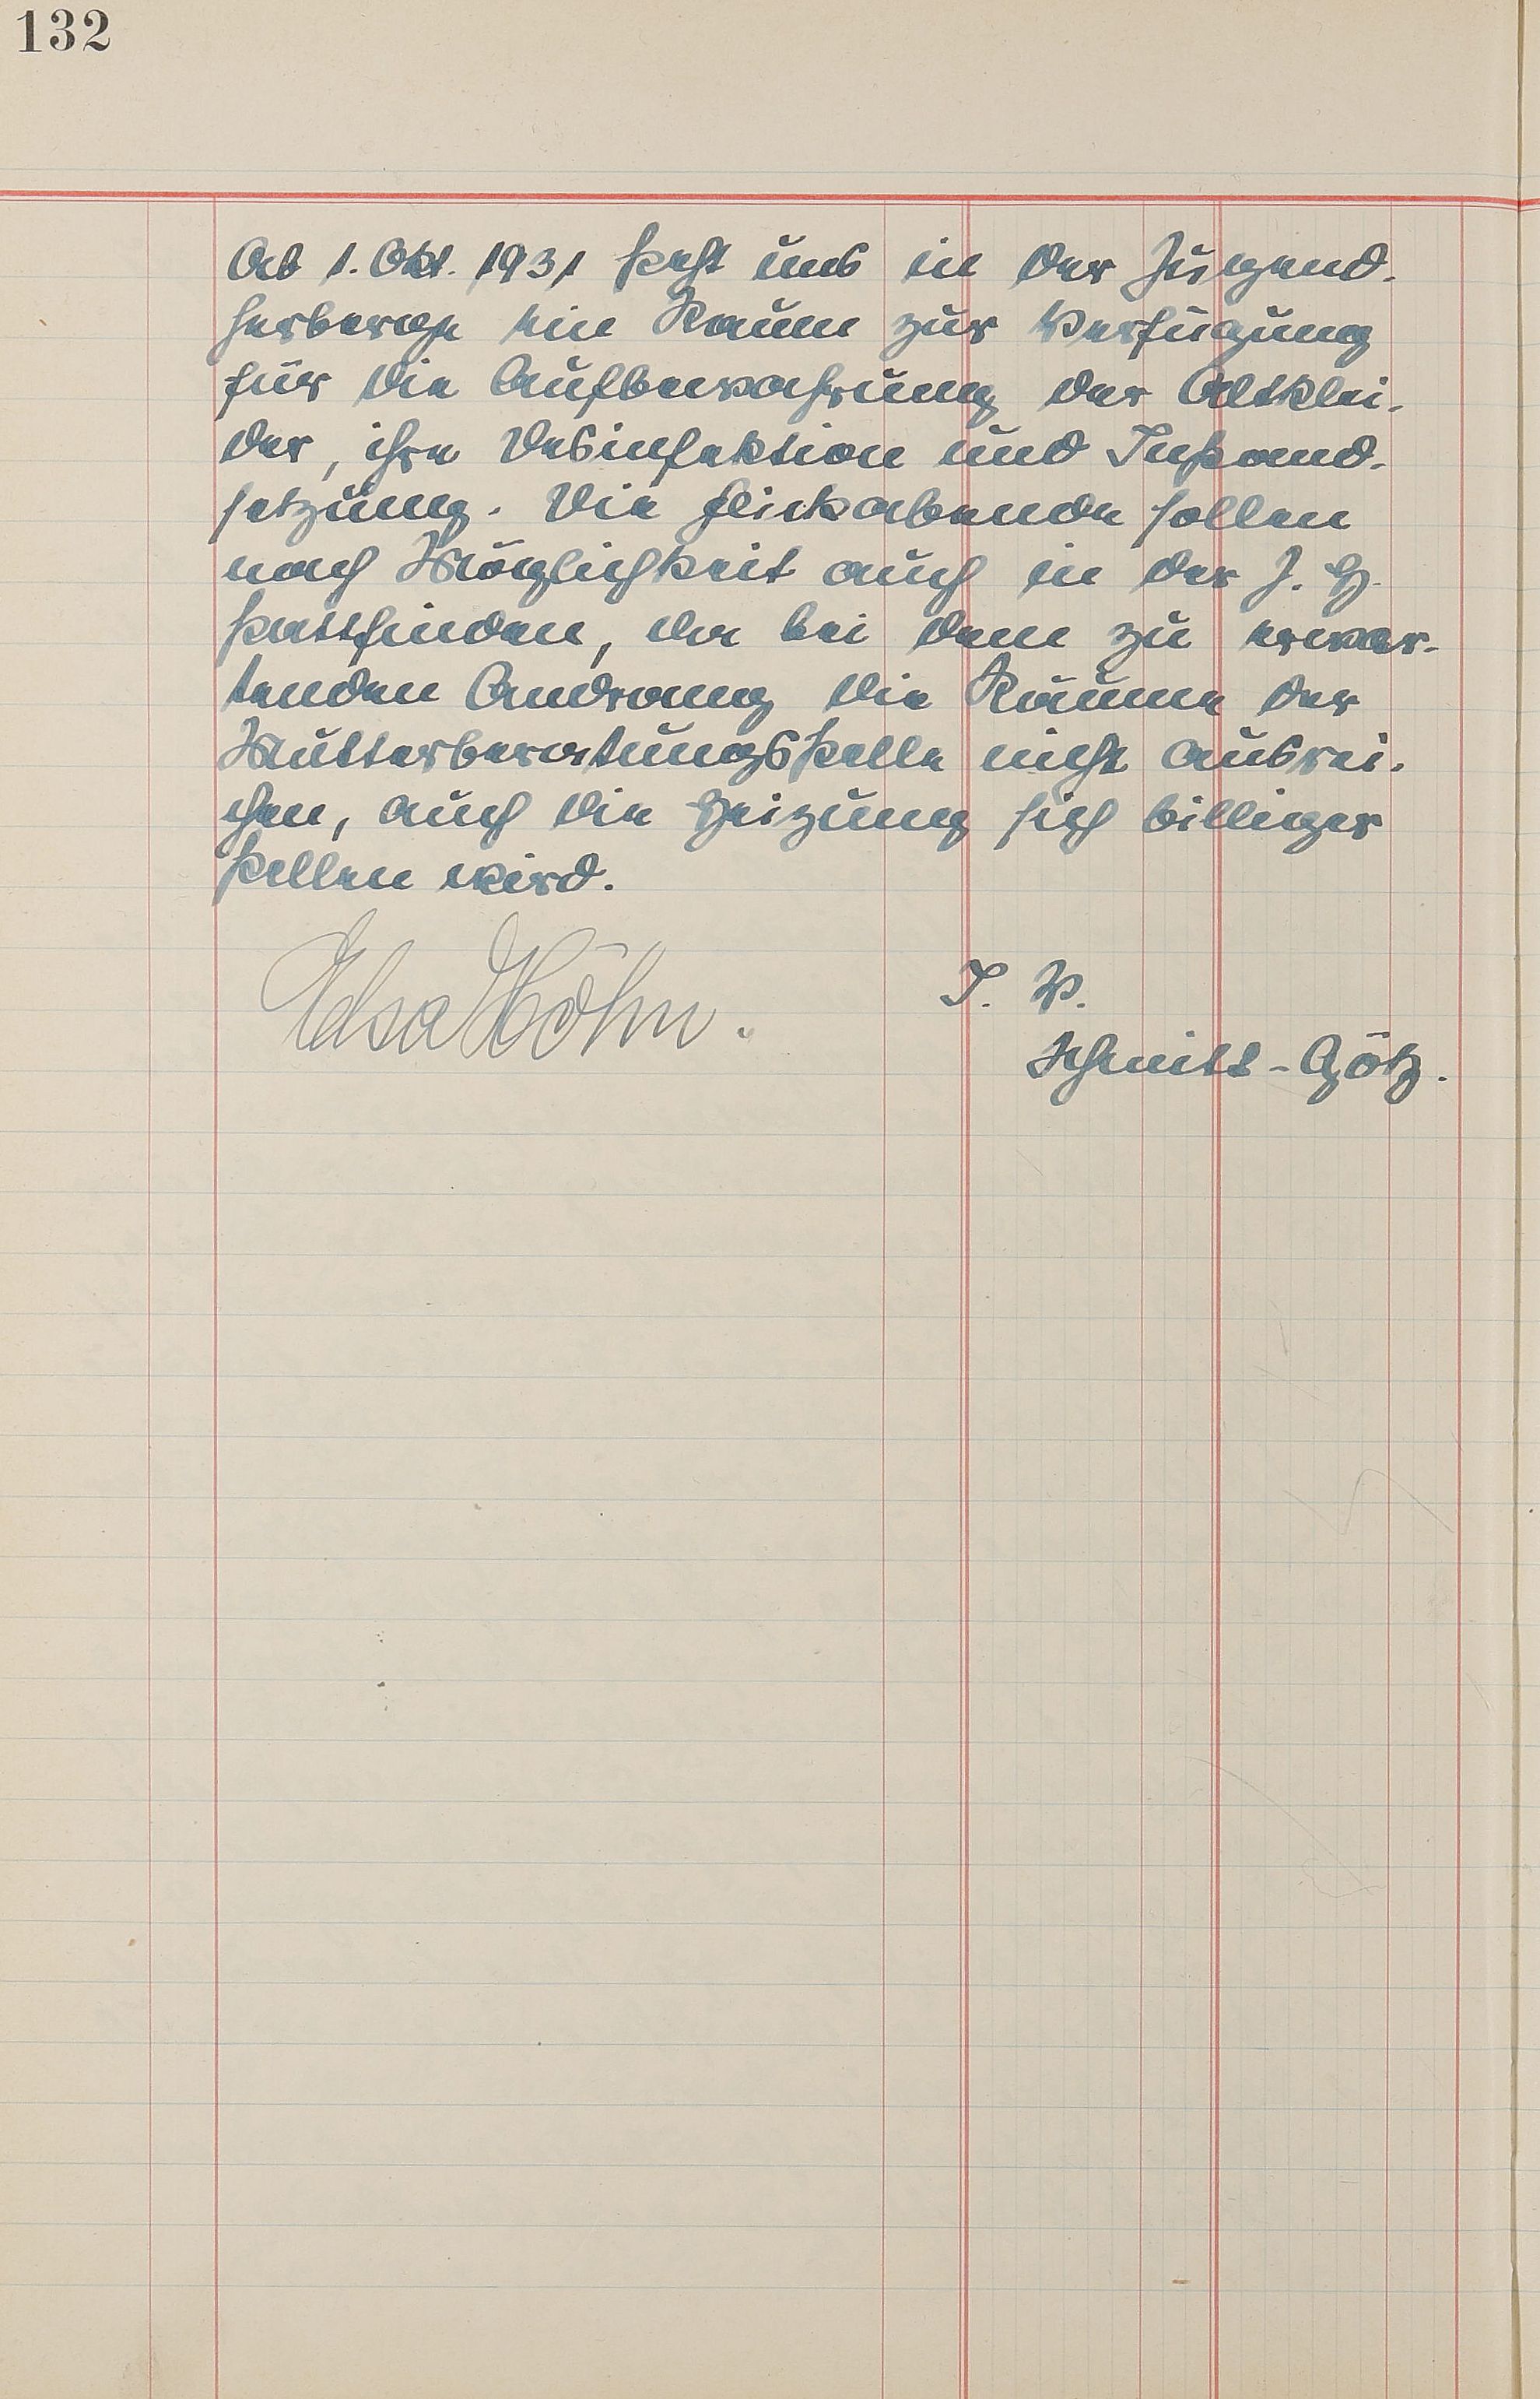 132
Ab 1. Okt. 1931 steht uns in der Jugend-
herberge ein Raum zur Verfügung
für die Aufbewahrung der Altklei-
der, ihre Desinfektion und Instand-
setzung. Die Flickabende sollen
nach Möglichkeit auch in der J. H.
stattfinden, da bei dem zu erwar-
tenden Andrang die Räume der
Mutterberatungsstelle nicht ausrei-
chen, auch die Heizung sich billiger
stellen wird.
Elsa Höhn.
I. V.
Schmitt-Götz.